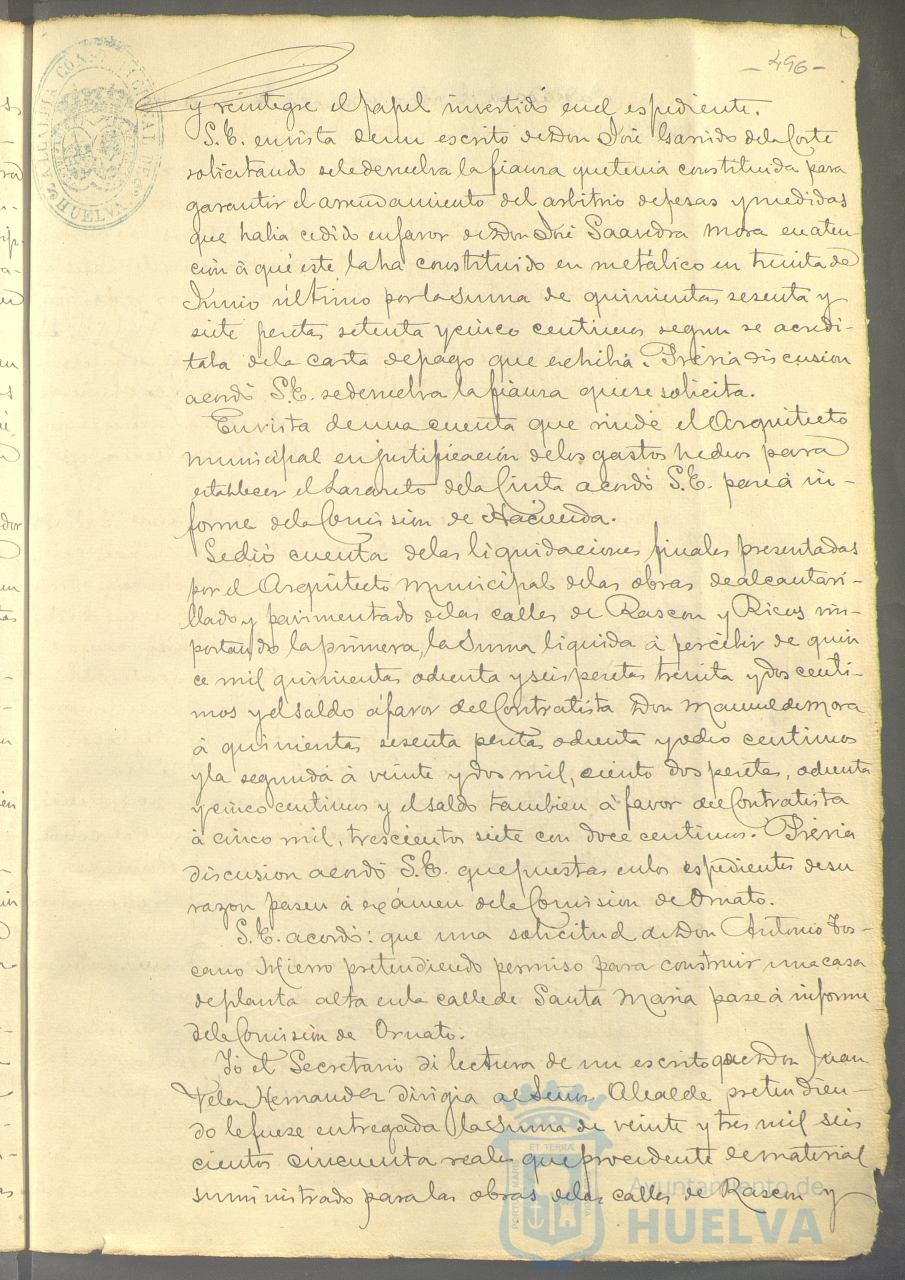 -496-
ALCALDIA CONSTITUCIONAL DE HUELVA
y reintegre el papel invertido en el espediente.
S.E. en vista de un escrito de Don José Garrido de la Corte
solicitando se le devuelva la fianza que tenia constituida para
garantir el arrendamiento del arbitrio de pesas y medidas
que habia cedido en favor de Don José Saavedra Mora en aten-
cion á que este la ha constituido en metálico en treinta de
Junio último por la suma de quinientas sesenta y
siete pesetas setenta y cinco centimos segun se acredi-
taba de la carta de pago que exhibia. Prévia discusion
acordó S.E. se devuelva la fianza que se solicita.
En vista de una cuenta que rinde el Arquitecto
municipal en justificación de los gastos hechos para
establecer el Lazareto de la Cinta acordó S.E. pase á in-
forme de la Comision de Hacienda.
Se dió cuenta de las liquidaciones finales presentadas
por el Arquitecto Municipal de las obras de alcantari-
llado y pavimentado de las calles de Rascon y Ricos im-
portando la primera, la suma liquida á percibir de quin
ce mil quinientas ochenta y seis pesetas treinta y dos centi-
mos y el saldo á favor del Contratista Don Manuel de Mora
á quinientas sesenta pesetas ochenta y ocho centimos
y la segunda á veinte y dos mil, ciento dos pesetas, ochenta
y cinco centimos y el saldo tambien á favor del Contratista
á cinco mil, trescientos siete con doce centimos. Prévia
discusion acordó S.E. que puestas en los espedientes de su
razon pasen á exámen de la Comision de Ornato.
S.E. acordó: que una solicitud de Don Antonio Tos-
cano Hierro pretendiendo permiso para construir una casa
de planta alta en la calle de Santa Maria pase á informe
de la Comisión de Ornato.
Yo el Secretario di lectura de un escrito que Don Juan
Velez Hernandez dirigia al Señor Alcalde pretendien-
do le fuese entregada la suma de veinte y tres mil seis
cientos cincuenta reales que procedente de material
suministrado para las obras de las calles de Rascon y
Ayuntamiento de
HUELVA